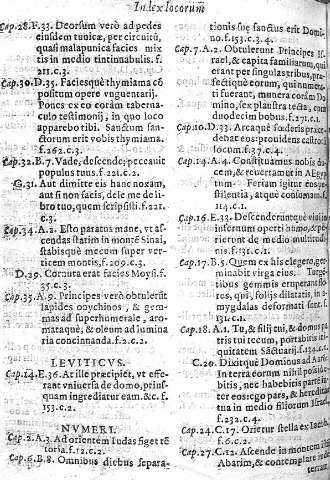 Index locorum
Cap.28.F.33. Deorsum verò ad pedes
eiusdem tunicæ, per circuitũ,
quasi malapunica facies mix
tis in medio tintinnabulis. f.
211.c.3.
Cap.30.D.35. Faciesque thymiama cõ
positum opere vnguentarij.
Pones ex eo corãm taberna-
culo testimonij, in quo loco
apparebo tibi. Sanctum san-
ctorum erit vobis thymiama.
f.262.c.3.
Cap.32.B.7. Vade, descende; peccauit
populus tuus. f.221.c.2.
G.31. Aut dimitte eis hanc noxam,
aut si non facis, dele me de li-
bro tuo, quem scripsisti. f.221.
c.3.
Cap.34.A.2. Esto paratus mane, vt as-
cendas statim in montẽ Sinai,
stabisque mecum super ver-
ticem montis. f.209.c.3.
D.29. Cornuta erat facies Moysi. f.
35.c.3.
Cap.35.A.9. Principes verò obtulerũt
lapides onychinos, & gem-
mas ad superhumerale, aro-
mataquè, & oleum ad lumina
ria concinnanda. f.2.c.2.
LEVITICVS.
Cap.14.E.36. At ille præcipiet, vt effe-
rant vniuersa de domo, prius-
quam ingrediatur eam. &c. f.
153.c.2.
NVMERI.
Cap.2.A.3. Ad orientem Iudas figet tẽ
toria. f.12.c.2.
Cap.6.B.8. Omnibus diebus separa-
tionis suæ sanctus erit Domi-
no. f.153.c.4.3.
Cap.7.A.2. Obtulerunt Principes Is-
rael, & capita familiarum, qui
erant per singulas tribus, præ-
fectique eorum, qui numera
ti fuerant, munera coram Do-
mino, sex plaustra tecta, cum
duodecim bobus. f.271.c.1.
Cap.10.D.33. Arcaque fœderis præce-
debat eos prouidens castrorũ
locum. f.37.c.4.
Cap.14.A.4. Constituamus nobis du-
cem, & reuertamur in Ægyp
tum. Feriam igitur eos pe-
stilentia, atque consumam. f.
114.c.1.
Cap.16.E.33. Descenderuntque viui in
infernum operti humo, & pe-
rierunt de medio multitudi-
nis. f.131.c.2.
Cap.17.B.5. Quem ex his elegero, ger-
minabit virga eius. Turgẽ-
tibus gemmis eruperant flo-
res, qui, folijs dilatatis, in a-
mygdalas deformati sunt. f.
131.c.1.
Cap.18.A.1. Tu, & filij tui, & domus pa
tris tui tecum, portabitis ini-
quitatem Sãctuarij. f.154.c.1.
C.20. Dixitque Dominus ad Aarõ:
In terra eorum nihil posside-
bitis, nec habebitis partẽ in-
ter eos: ego pars, & hereditas
tua in medio filiorum Israel.
f.232.c.4.
Cap.24.C.17. Orietur stella ex Iacob.
f.6.c.2.
Cap.27.C.12. Ascende in montem istũ
Abarim, & contemplare inde
terram